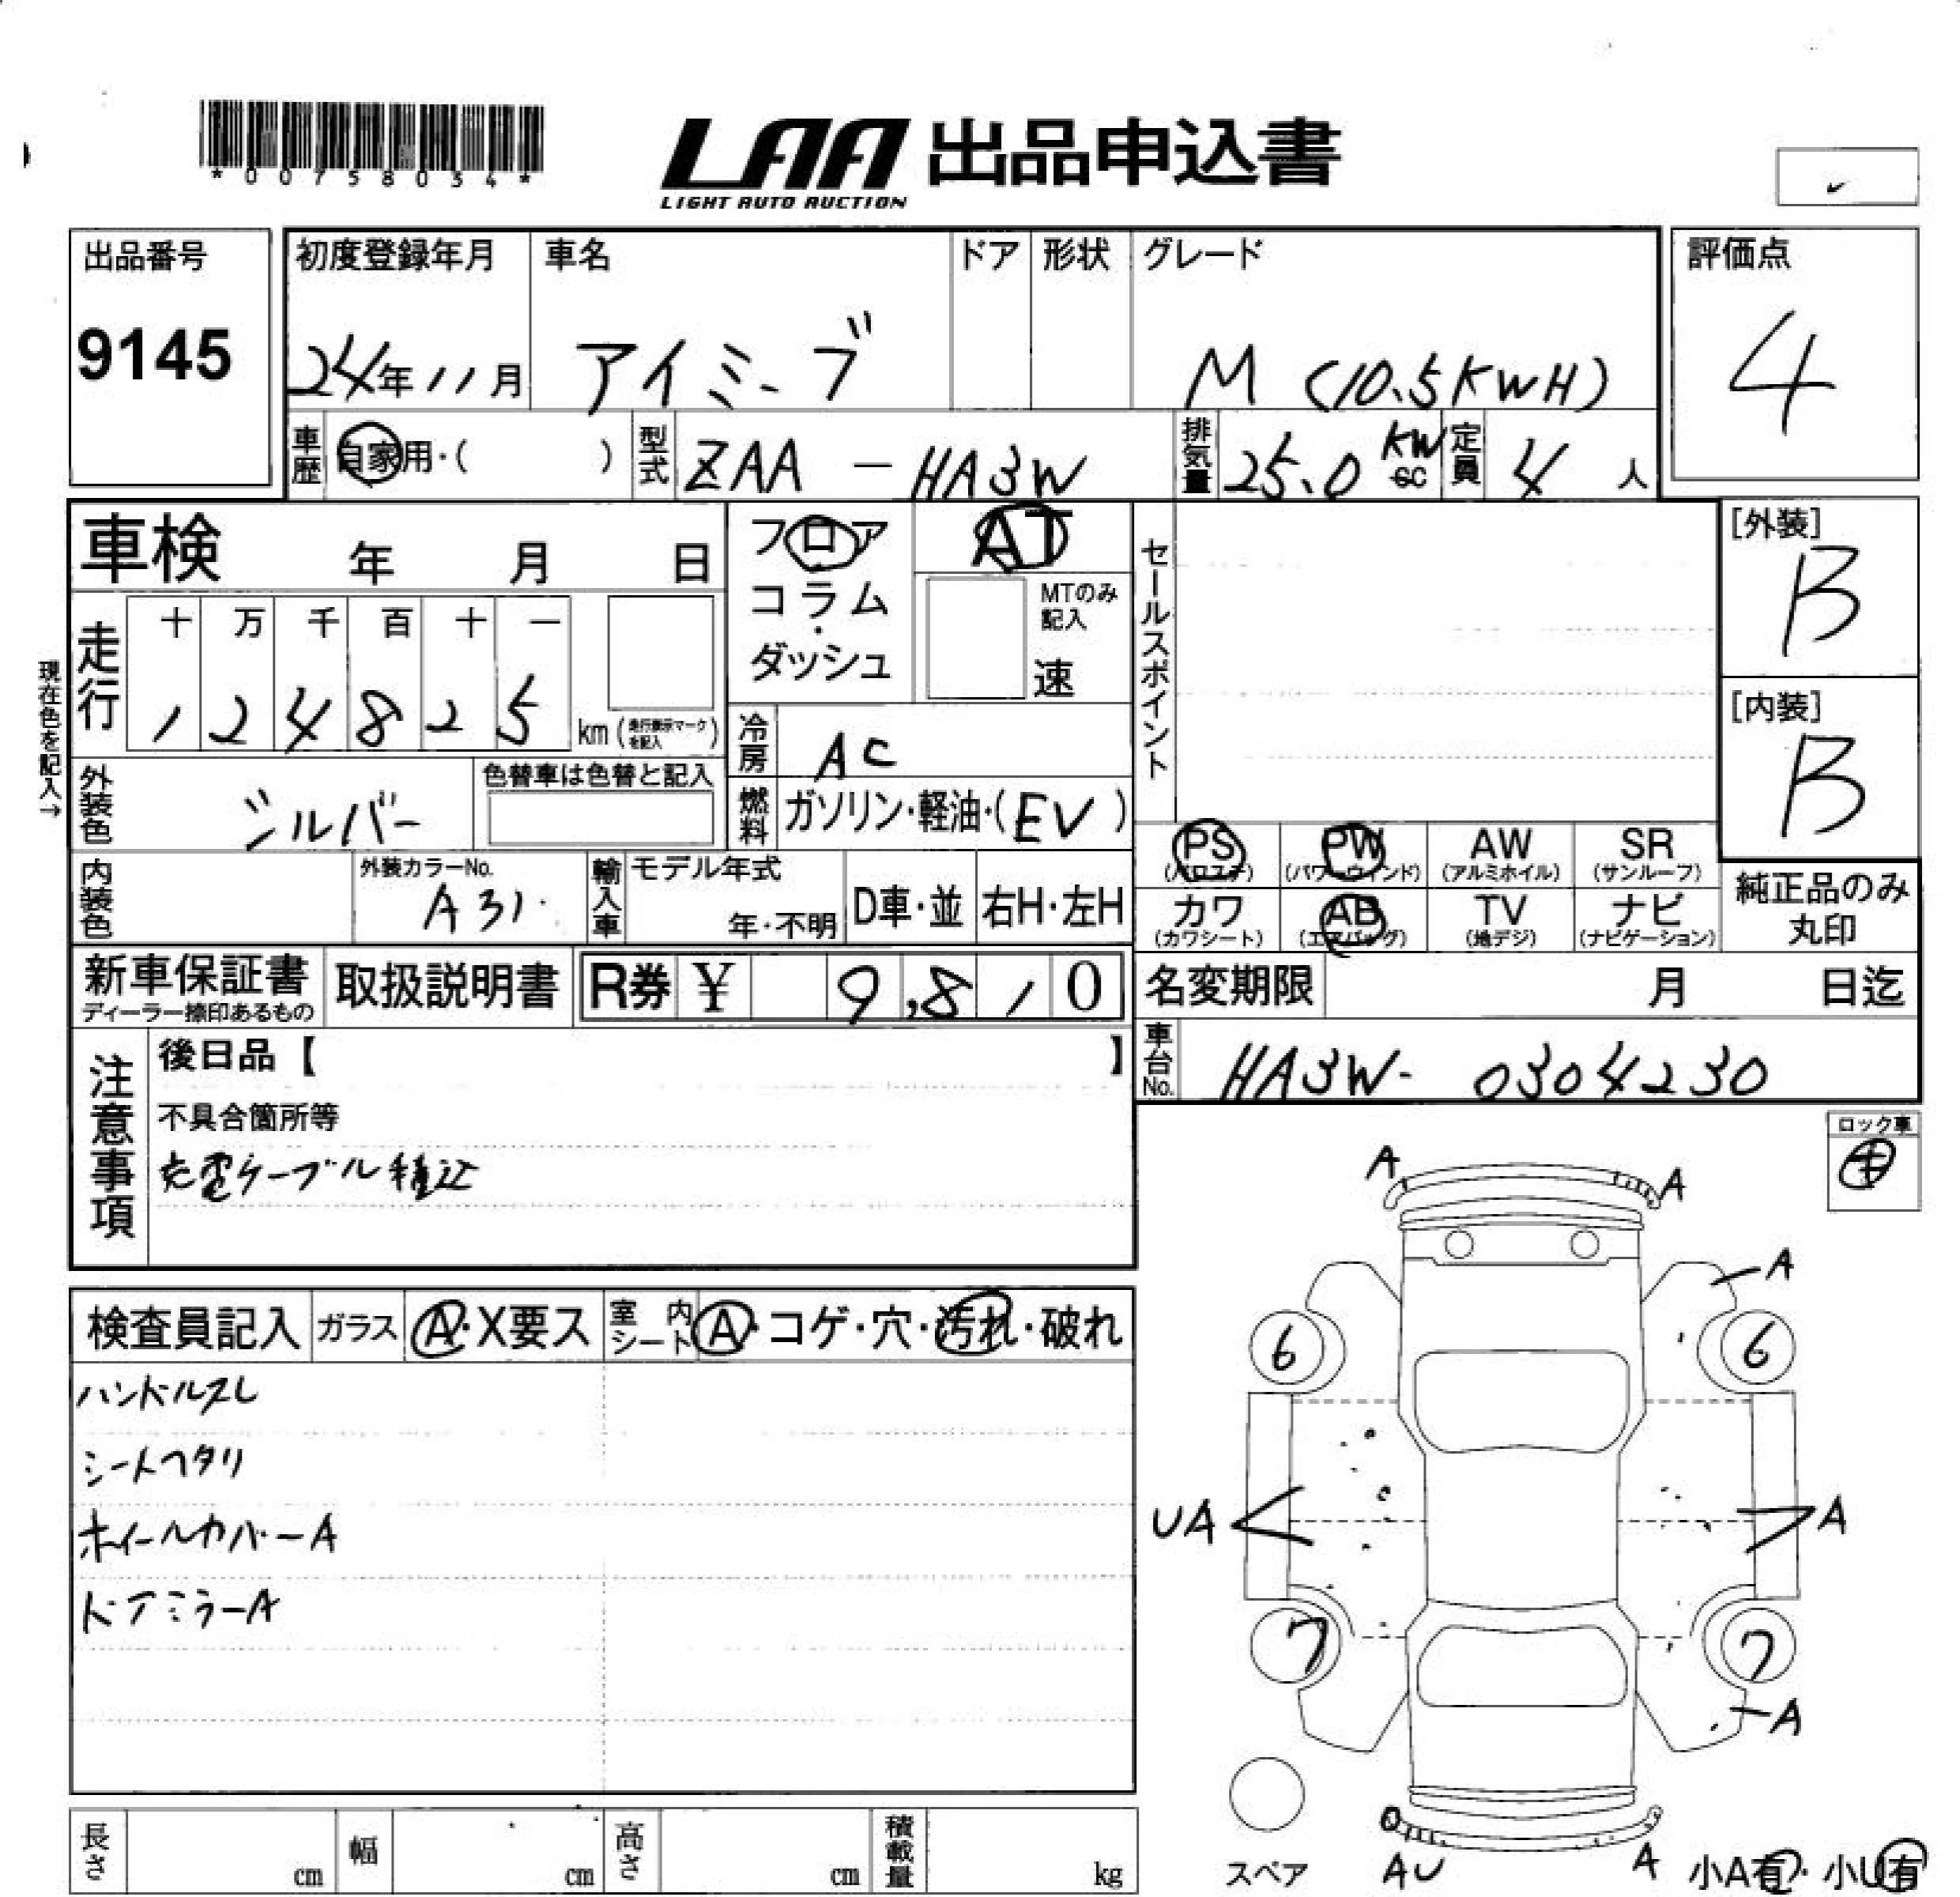 *00758034*
LAA 出品申込書
LIGHT AUTO AUCTION
出品番号
9145
初度登録年月 車名 ドア 形状 グレード 評価点
24年11月 アイミーブ M (10.5KWH) 4
車歴 自家用・( ) 型式 ZAA - HA3W 排気量 25.0 KW cc 定員 4 人
車検 年 月 日
フロア・コラム・ダッシュ
AT
MTのみ記入
速
セールスポイント
[外装]
B
[内装]
B
現在色を記入→
走行 十 万 千 百 十 一
1 2 4 8 2 5 km (走行表示マークを記入)
冷房 AC
外装色 シルバー 色替車は色替と記入
燃料 ガソリン・軽油・(EV)
内装色 外装カラーNo. A31
輸入車 モデル年式 年・不明 D車・並 右H・左H
PS (パワステ) PW (パワーウィンド) AW (アルミホイル) SR (サンルーフ)
カワ (カワシート) AB (エアバッグ) TV (地デジ) ナビ (ナビゲーション)
純正品のみ丸印
新車保証書 ディーラー捺印あるもの 取扱説明書 R券 ¥ 9,810
名変期限 月 日迄
車台No. HA3W- 0304230
注意事項
後日品【 】
不具合箇所等
充電ケーブル積込
ロック車
キ
検査員記入 ガラス A・X要ス 室内シート A・コゲ・穴・汚れ・破れ
ハンドルスレ
シートヘタリ
ホイールカバーA
ドアミラーA
A A
A
6 6
UA A
7 7
A
スペア AU A 小A有・小U有
長さ cm 幅 cm 高さ cm 積載量 kg